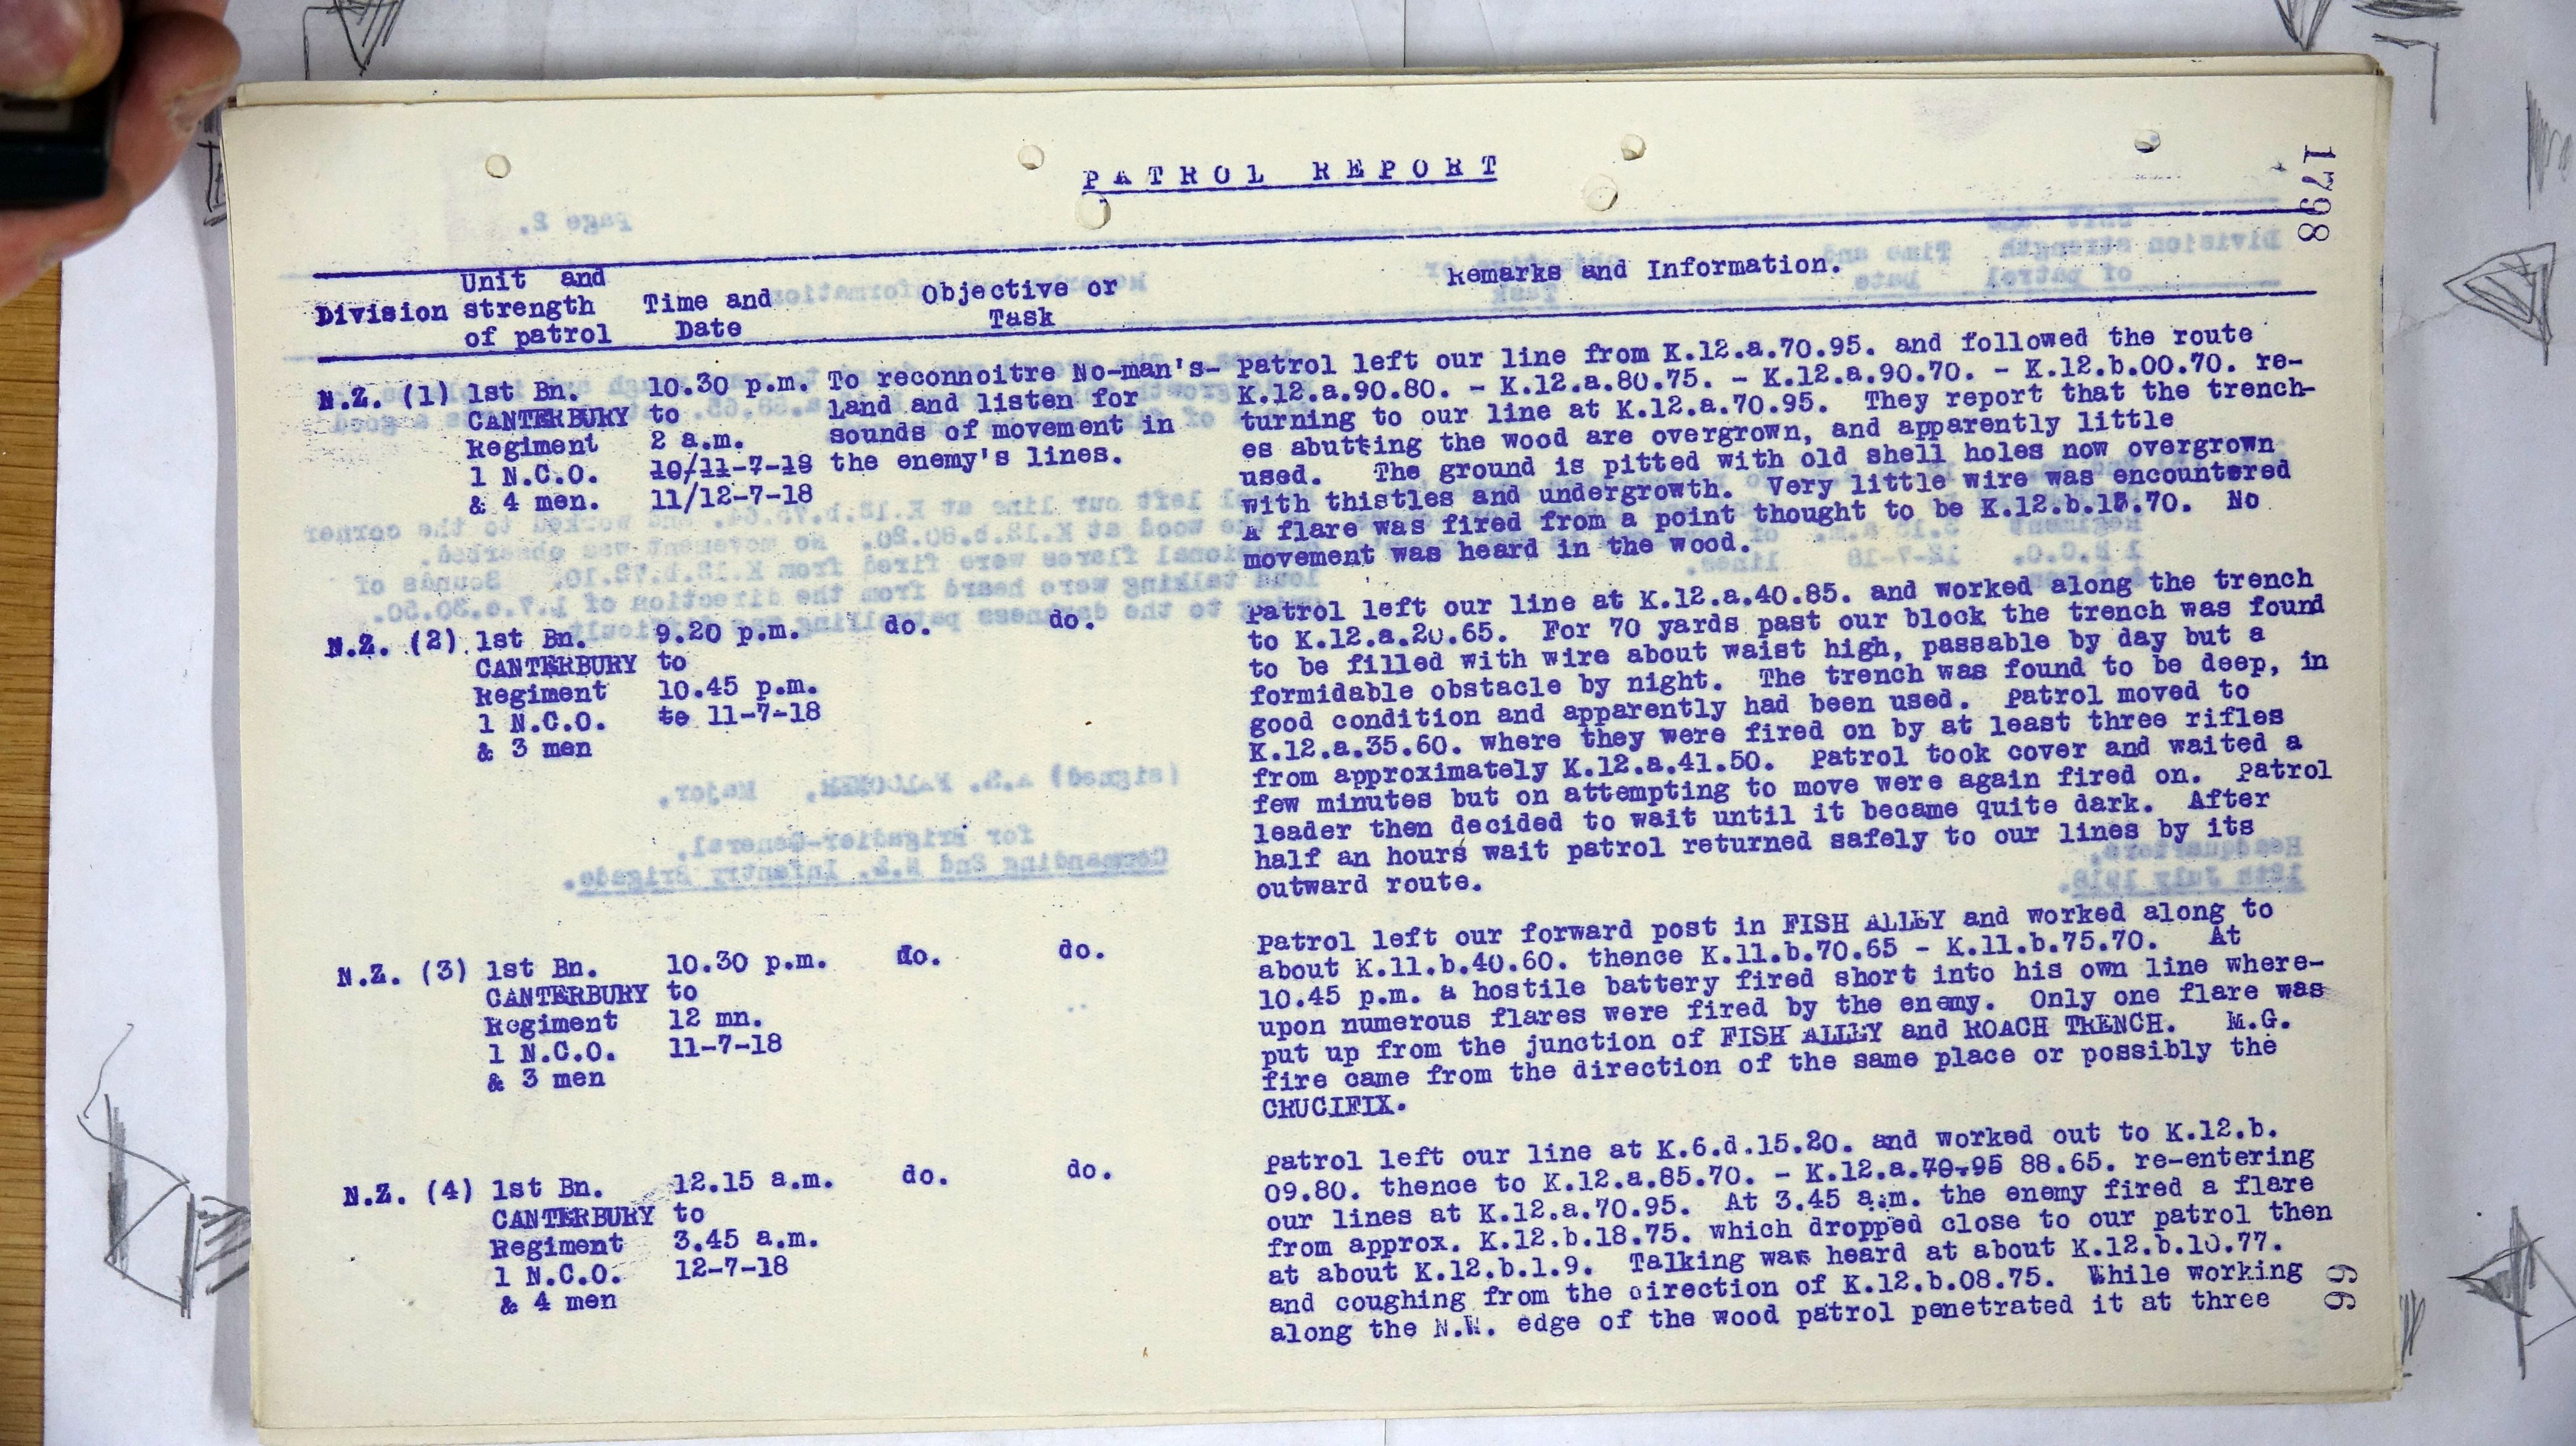 PATROL REPORT
1798
Division
Unit and
strength
of patrol
Time and
Date
Objective or
Task
Remarks and Information.
N.Z. (1)
1st Bn.
CANTERBURY
Regiment
1 N.C.O.
& 4 men.
10.30 p.m.
to
2 a.m.
10/11-7-18
11/12-7-18
To reconnoitre No-man's-
land and listen for
sounds of movement in
the enemy's lines.
Patrol left our line from K.12.a.70.95. and followed the route
K.12.a.90.80. - K.12.a.80.75. - K.12.a.90.70. - K.12.b.00.70. re-
turning to our line at K.12.a.70.95. They report that the trench-
es abutting the wood are overgrown, and apparently little
used. The ground is pitted with old shell holes now overgrown
with thistles and undergrowth. Very little wire was encountered
A flare was fired from a point thought to be K.12.b.15.70. No
movement was heard in the wood.
N.Z. (2)
1st Bn.
CANTERBURY
Regiment
1 N.C.O.
& 3 men
9.20 p.m.
to
10.45 p.m.
to 11-7-18
do. do.
Patrol left our line at K.12.a.40.85. and worked along the trench
to K.12.a.20.65. For 70 yards past our block the trench was found
to be filled with wire about waist high, passable by day but a
formidable obstacle by night. The trench was found to be deep, in
good condition and apparently had been used. Patrol moved to
K.12.a.35.60. where they were fired on by at least three rifles
from approximately K.12.a.41.50. Patrol took cover and waited a
few minutes but on attempting to move were again fired on. Patrol
leader then decided to wait until it became quite dark. After
half an hours wait patrol returned safely to our lines by its
outward route.
N.Z. (3)
1st Bn.
CANTERBURY
Regiment
1 N.C.O.
& 3 men
10.30 p.m.
to
12 mn.
11-7-18
do. do.
Patrol left our forward post in FISH ALLEY and worked along to
about K.11.b.40.60. thence K.11.b.70.65 - K.11.b.75.70. At
10.45 p.m. a hostile battery fired short into his own line where-
upon numerous flares were fired by the enemy. Only one flare was
put up from the junction of FISH ALLEY and ROACH TRENCH. M.G.
fire came from the direction of the same place or possibly the
CRUCIFIX.
N.Z. (4)
1st Bn.
CANTERBURY
Regiment
1 N.C.O.
& 4 men
12.15 a.m.
to
3.45 a.m.
12-7-18
do. do.
Patrol left our line at K.6.d.15.20. and worked out to K.12.b.
09.80. thence to K.12.a.85.70. - K.12.a.70.95 88.65. re-entering
our lines at K.12.a.70.95. At 3.45 a.m. the enemy fired a flare
from approx. K.12.b.18.75. which dropped close to our patrol then
at about K.12.b.1.9. Talking was heard at about K.12.b.10.77.
and coughing from the direction of K.12.b.08.75. While working
along the N.W. edge of the wood patrol penetrated it at three
66